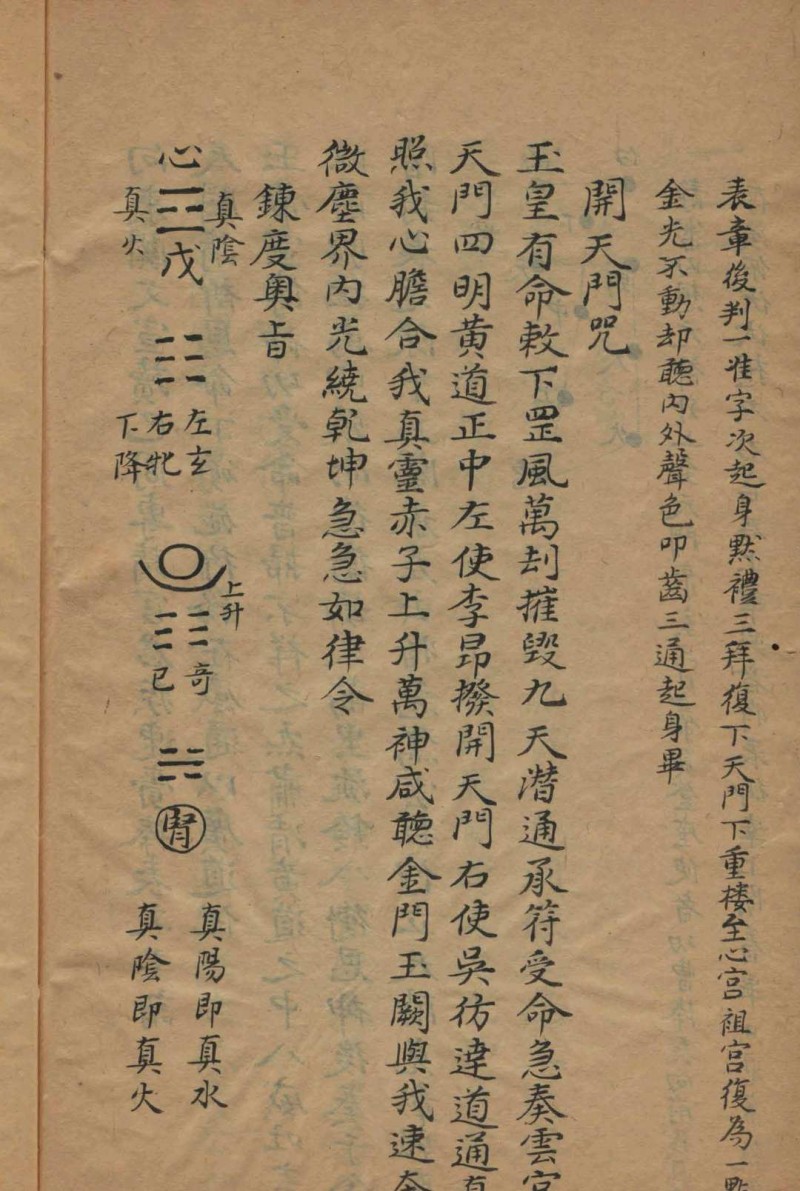 表章後判一准字次起身默禮三拜復下天門下重楼至心宫祖宫復為一點
金光不動却聽内外聲色叩齒三通起身畢
開天門咒
玉皇有命敕下罡風萬刦摧毀九天潜通承符受命急奏雲宫
天門四明黄道正中左使李昂撥開天門右使吳彷達道通真
照我心膽合我真靈赤子上升萬神咸聽金門玉闕與我速奏
微塵界内光繞乾坤急急如律令
鍊度奥旨
真陰
心
戊
真火
左玄
右牝
下降
上升
奇
己
腎
真陽即真水
真陰即真火